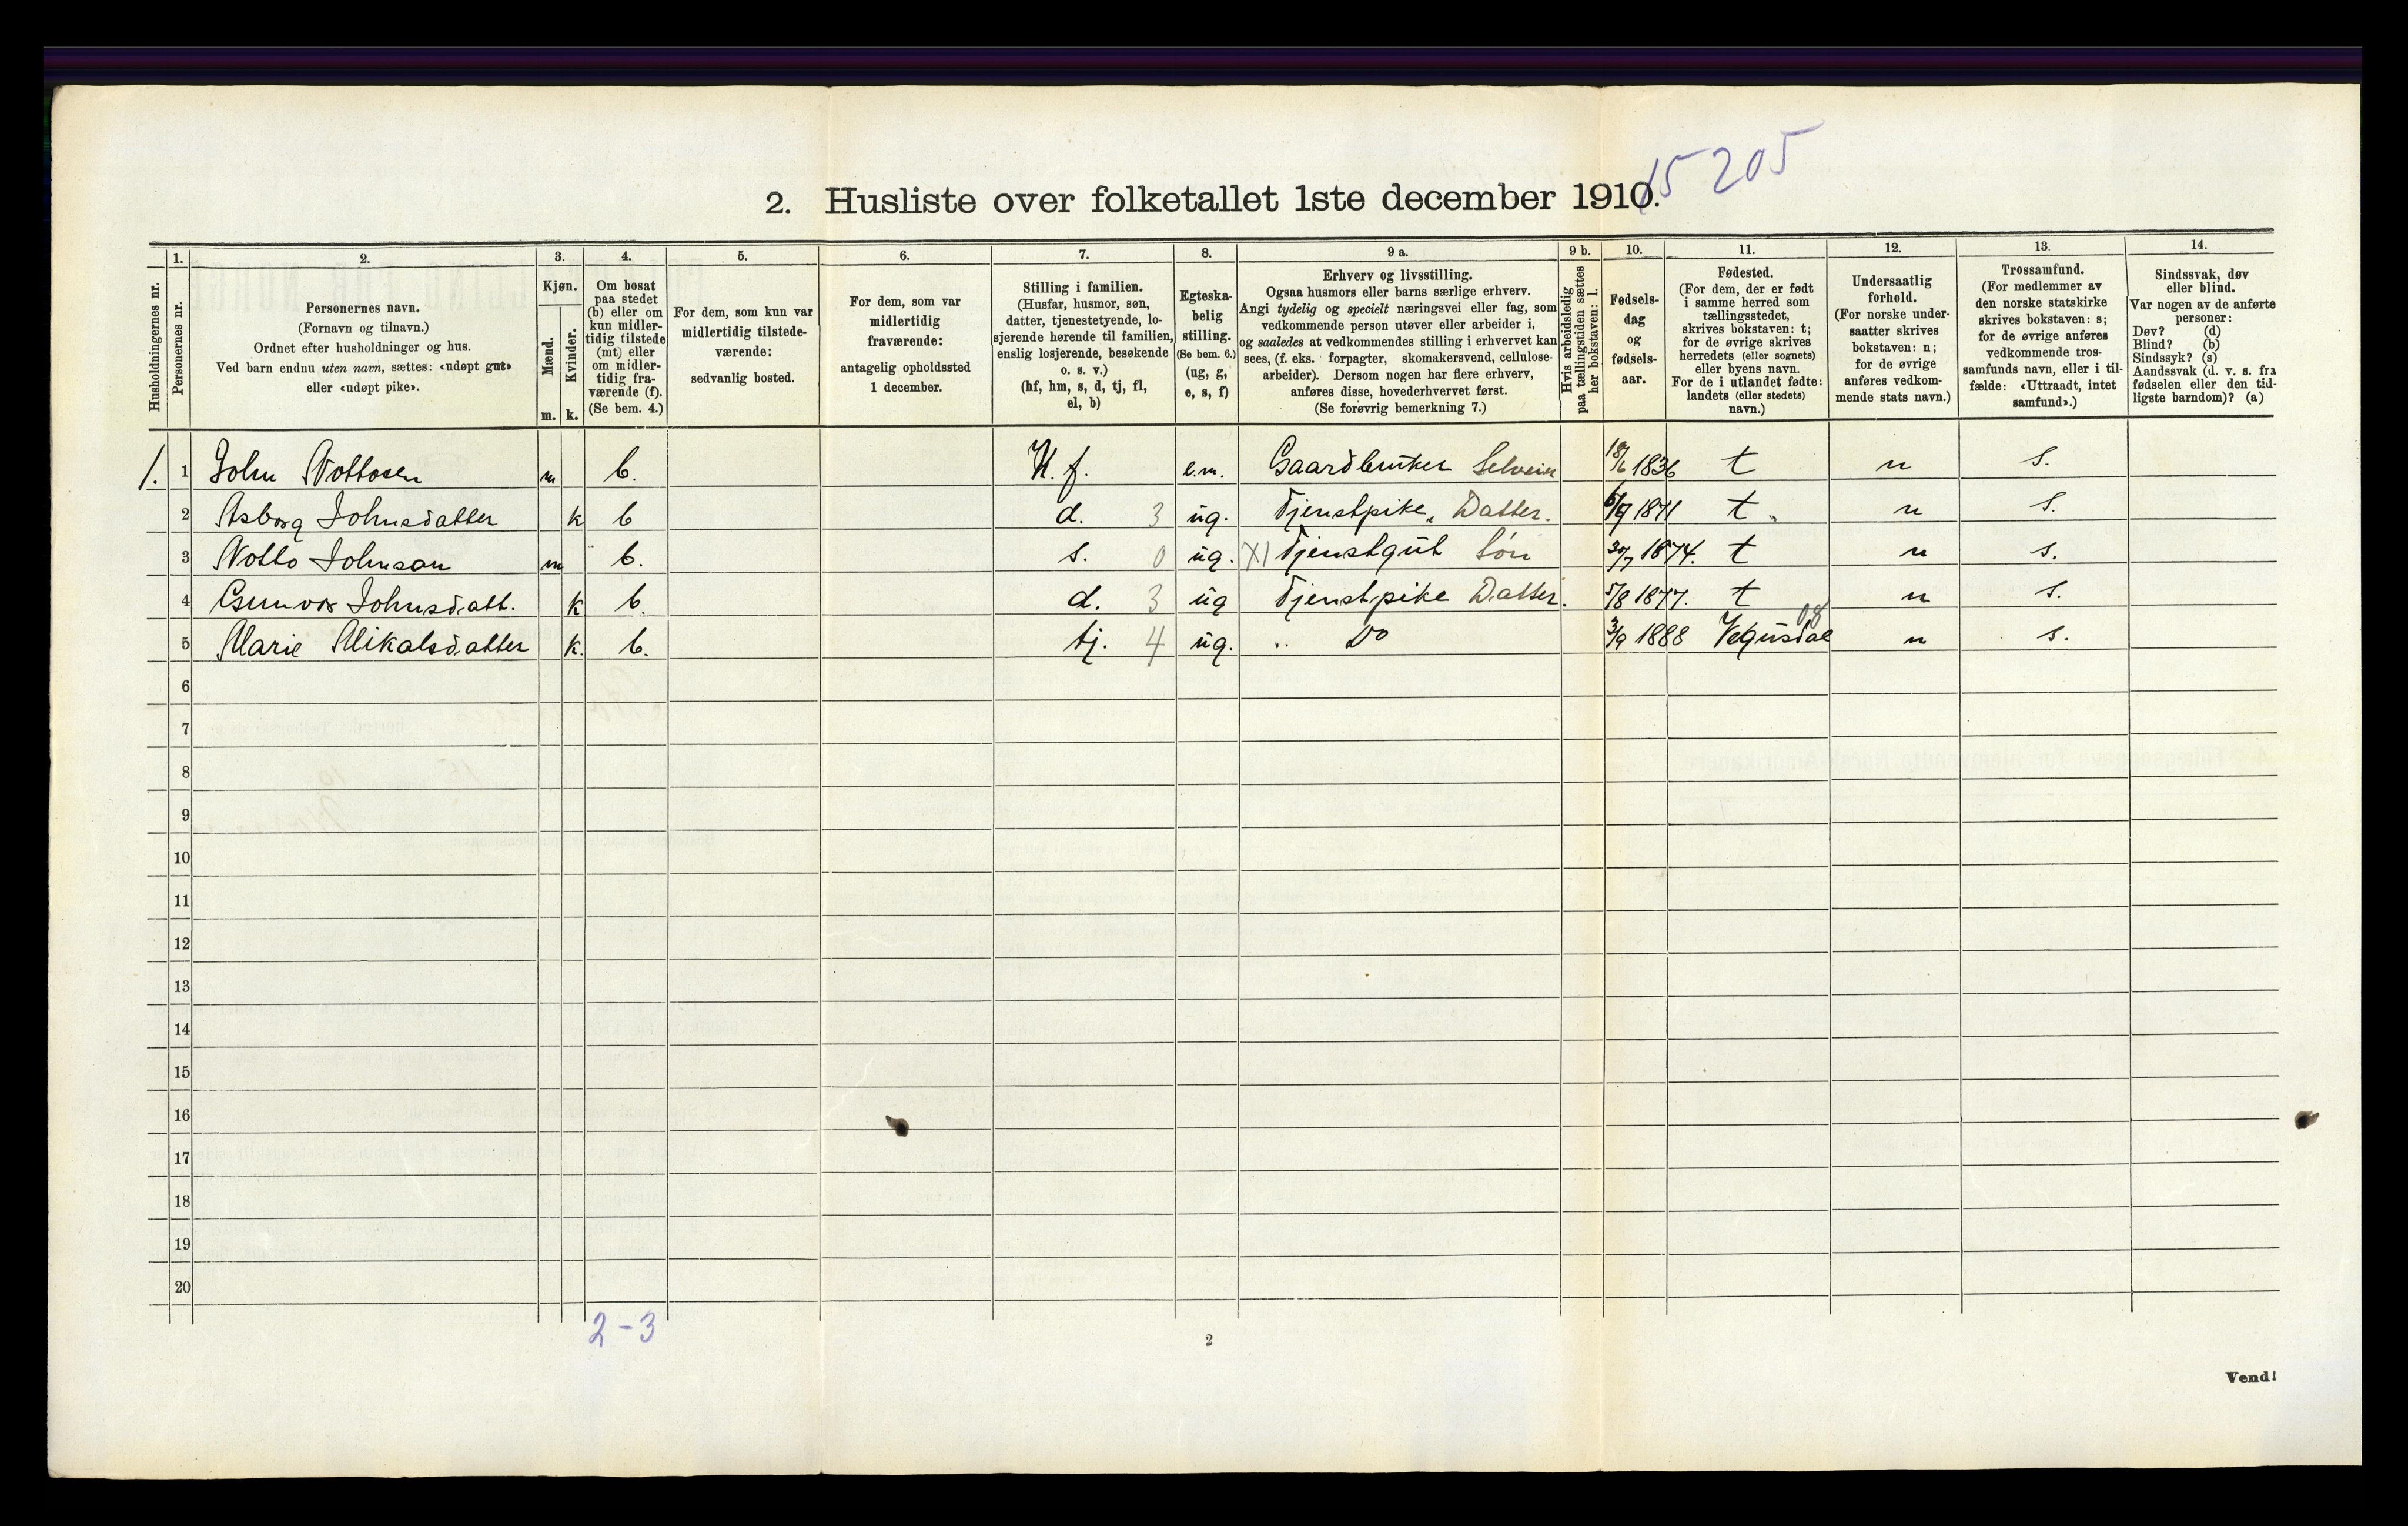 15 205
2. Husliste over folketallet 1ste december 1910.
Husholdningernes nr.
1. Personernes nr.
2. Personernes navn.
(Fornavn og tilnavn.)
Ordnet efter husholdninger og hus.
Ved barn endnu uten navn, sættes: «udøpt gut»
eller «udøpt pike».
3. Kjøn.
Mænd. m.
Kvinder. k.
4. Om bosat
paa stedet
(b) eller om
kun midler-
tidig tilstede
(mt) eller
om midler-
tidig fra-
værende (f).
(Se bem. 4.)
5. For dem, som kun var
midlertidig tilstede-
værende:
sedvanlig bosted.
6. For dem, som var
midlertidig
fraværende:
antagelig opholdssted
1 december.
7. Stilling i familien.
(Husfar, husmor, søn,
datter, tjenestetyende, lo-
sjerende hørende til familien,
enslig losjerende, besøkende
o. s. v.)
(hf, hm, s, d, tj, fl,
el, b)
8. Egteska-
belig
stilling.
(Se bem. 6.)
(ug, g,
e, s, f)
9 a. Erhverv og livsstilling.
Ogsaa husmors eller barns særlige erhverv.
Angi tydelig og specielt næringsvei eller fag, som
vedkommende person utøver eller arbeider i,
og saaledes at vedkommendes stilling i erhvervet kan
sees, (f. eks. forpagter, skomakersvend, cellulose-
arbeider). Dersom nogen har flere erhverv,
anføres disse, hovederhvervet først.
(Se forøvrig bemerkning 7.)
9 b. Hvis arbeidsledig
paa tællingstiden sættes
her bokstaven: l.
10. Fødsels-
dag
og
fødsels-
aar.
11. Fødested.
(For dem, der er født
i samme herred som
tællingsstedet,
skrives bokstaven: t;
for de øvrige skrives
herredets (eller sognets)
eller byens navn.
For de i utlandet fødte:
landets (eller stedets)
navn.)
12. Undersaatlig
forhold.
(For norske under-
saatter skrives
bokstaven: n;
for de øvrige
anføres vedkom-
mende stats navn.)
13. Trossamfund.
(For medlemmer av
den norske statskirke
skrives bokstaven: s;
for de øvrige anføres
vedkommende tros-
samfunds navn, eller i til-
fælde: «Uttraadt, intet
samfund».)
14. Sindssvak, døv
eller blind.
Var nogen av de anførte
personer:
Døv? (d)
Blind? (b)
Sindssyk? (s)
Aandssvak (d. v. s. fra
fødselen eller den tid-
ligste barndom)? (a)
1. 1 John Nottosen m b. H. f. e.m. Gaardbruker Selveier 18/6 1836 t n s.
2 Asborg Johnsdatter k b d. 3 ug. Tjenstpike Datter. 6/9 1871 t n s.
3 Notto Johnson m b. s. 0 ug. XI Tjenstgut Søn 30/7 1874. t n s.
4 Gunvor Johnsdatt. k b. d. 3 ug Tjenstpike Datter. 5/8 1877. t n s.
5 Marie Mikalsdatter k. b. tj. 4 ug. " Do 3/9 1888 Vegusdal 08 n s.
6
7
8
9
10
11
12
13
14
15
16
17
18
19
20
2-3
2
Vend!